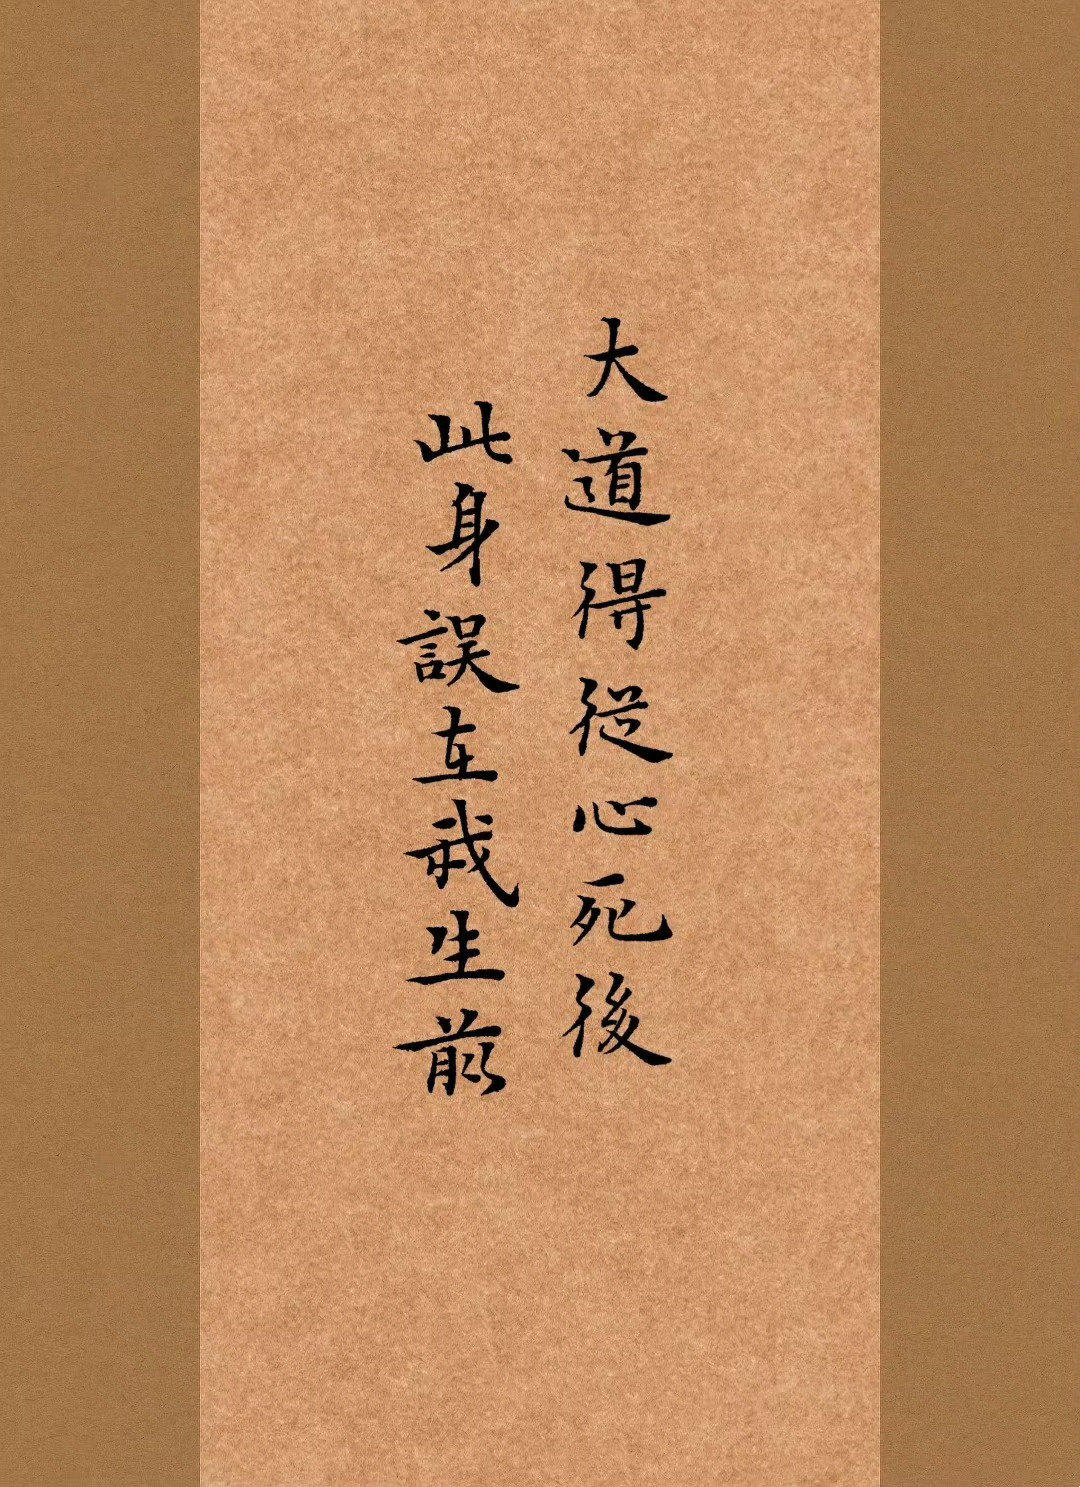 大道得從心死後
此身誤在我生前